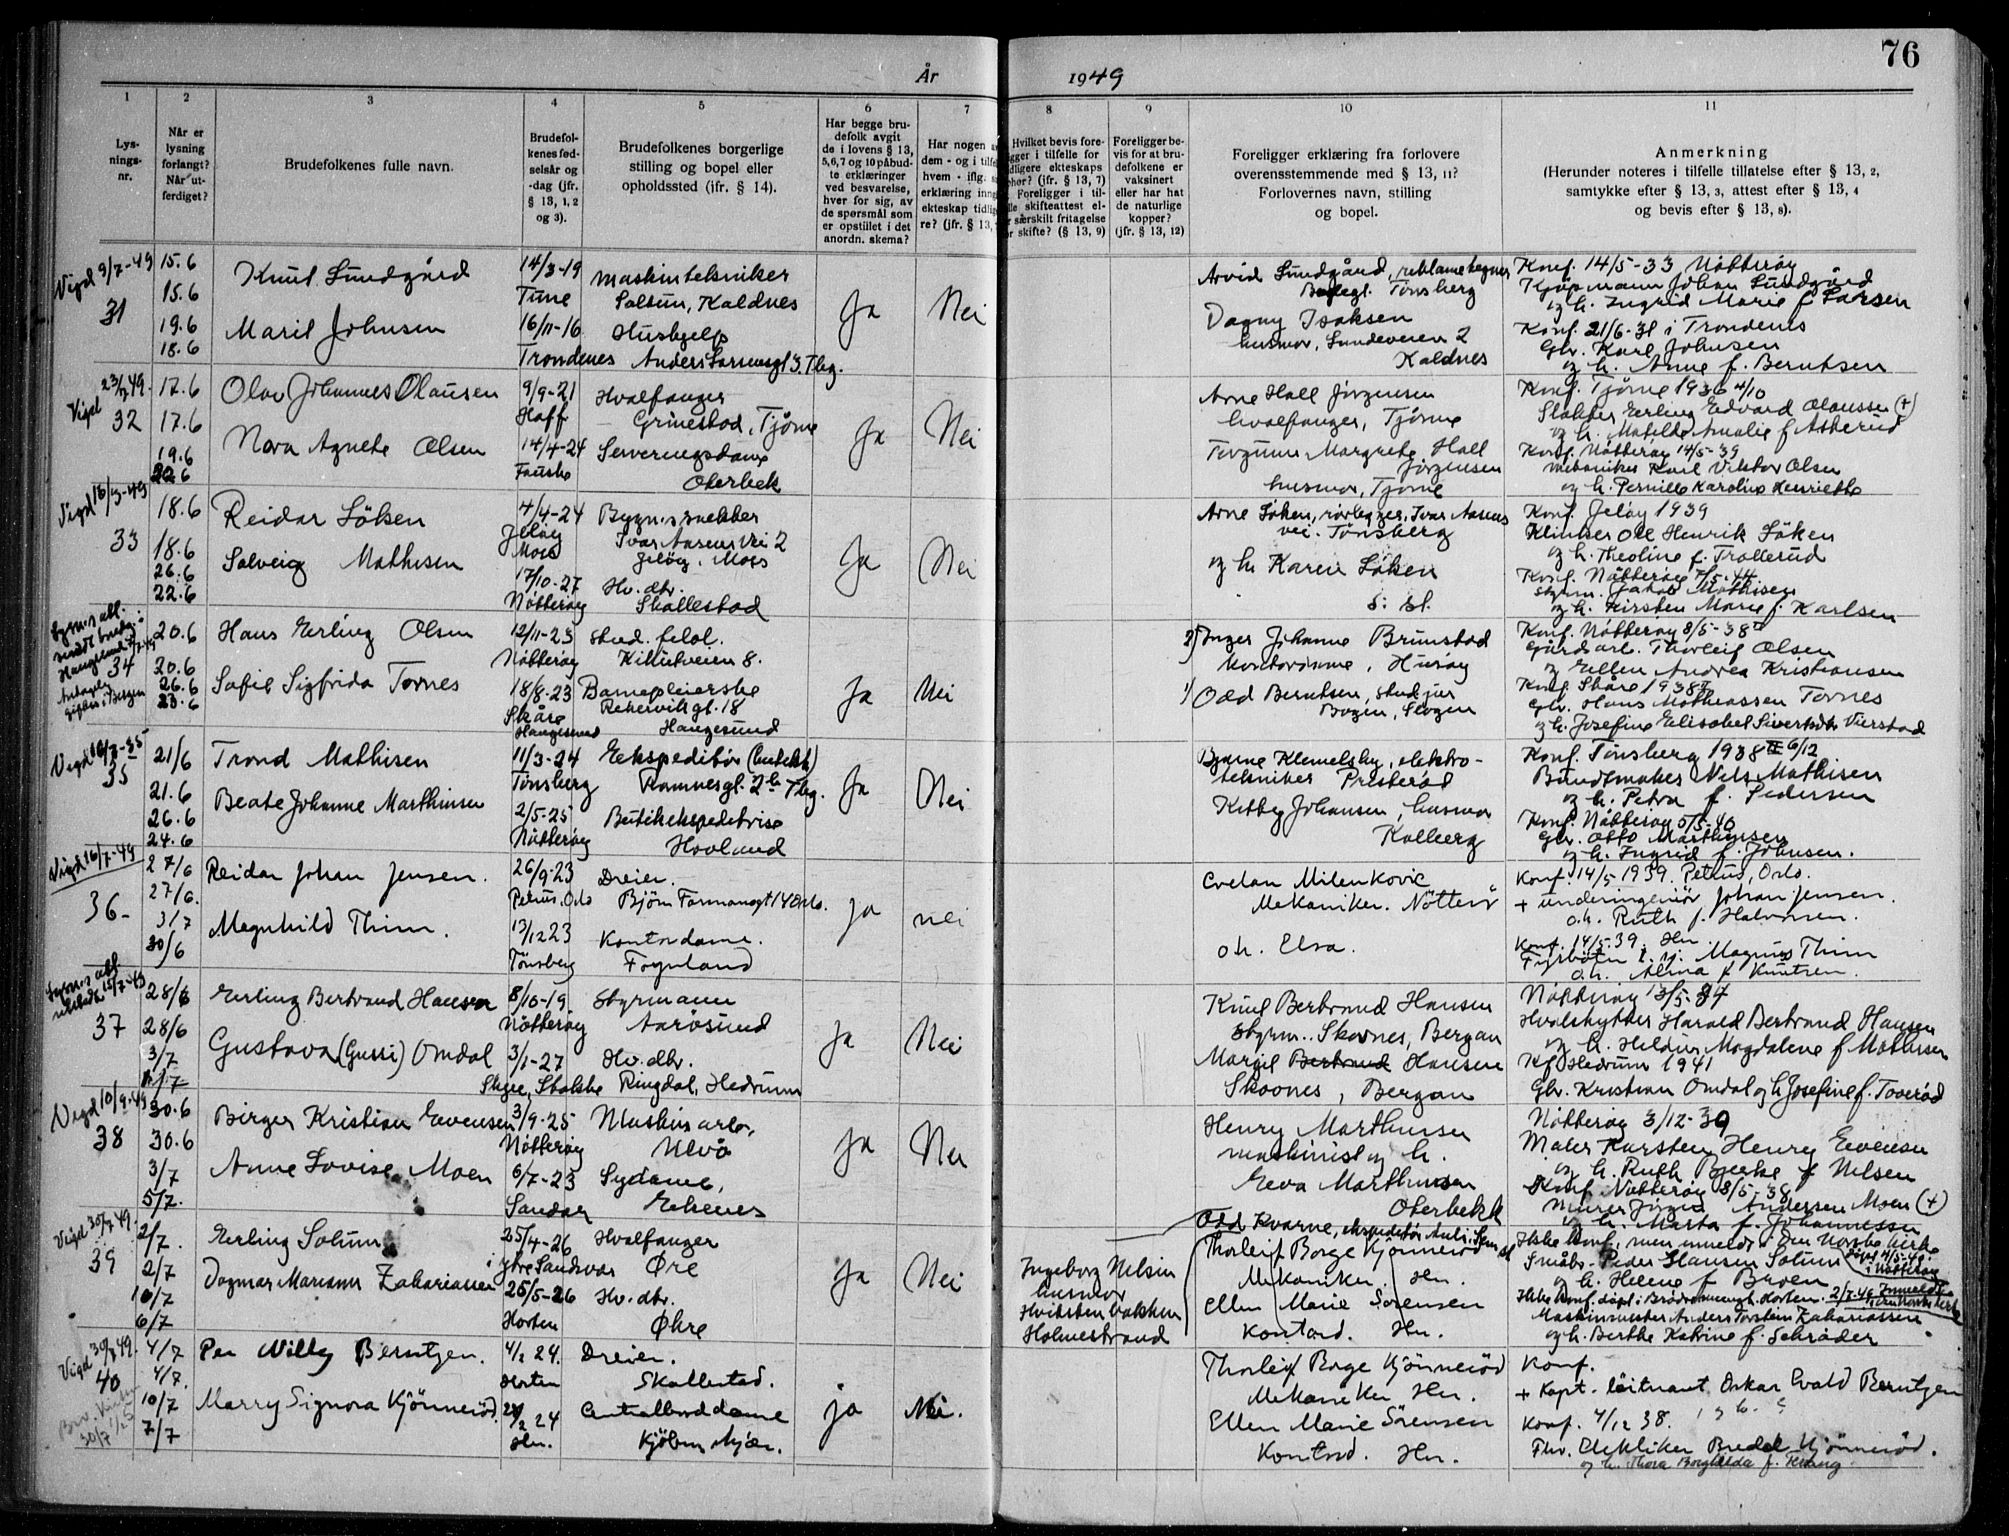 76
År 1949
1
Lys-
nings-
nr.
2
Når er
lysning
forlangt?
Når ut-
ferdiget?
3
Brudefolkenes fulle navn.
4
Brudefol-
kenes fød-
selsår og
-dag (jfr.
§ 13, 1, 2
og 3).
5
Brudefolkenes borgerlige
stilling og bopel eller
opholdssted (jfr. § 14).
6
Har begge bru-
defolk avgit
de i lovens § 13,
5,6,7 og 10 påbud-
te erklæringer
ved besvarelse,
hver for sig, av
de spørsmål som
er opstillet i det
anordn. skema?
7
Har nogen a
dem - og i tilfel
hvem - iflg. s
erklæring inng
ekteskap tidlig
re? (jfr. § 13,
8
Hvilket bevis fore-
gger i tilfelle for
dligere ekteskaps
phør? (jfr. § 13, 7)
Foreligger i til-
lle skifteattest el-
r særskilt fritagelse
r skifte? (§ 13, 9)
9
Foreligger be-
vis for at bru-
defolkene er
vaksinert
eller har hat
de naturlige
kopper?
(jfr. § 13, 12)
10
Foreligger erklæring fra forlovere
overensstemmende med § 13, 11?
Forlovernes navn, stilling
og bopel.
11
Anmerkning
(Herunder noteres i tilfelle tillatelse efter § 13, 2,
samtykke efter § 13, 3, attest efter § 13, 4
og bevis efter § 13, 8).
Vigd 9/7-49
31
15.6
15.6
19.6
18.6
Knut Sundgård
Marit Johnsen
14/3-19
Tune
16/11-16
Trondenes
Maskintekniker
Solsun, Kaldnes
Hushjelp
Ja
Nei
Arvid Sundgård, reklametegner
Tønsberg
Dagny Isaksen
husmor, Lundeveien 2
Kaldnes
Konf. 14/5-33 Nøtterøy
Kjøpmann Johan Sundgård
og h. Ingrid Marie f Larsen
Konf. 21/6-31 i Trondenes
Gbr. Karl Johnsen
og h. Anne f. Berntsen
Vigd
32
17.6
17.6
19.6
22.6
Olav Johannes Olausen
Nora Agnete Olsen
9/9-21
Haff
14/4-24
Fauske
Hvalfanger
Grimestad, Tjøme
Serveringsdame
Oterbekk
Ja
Nei
Arne Hall Jørgensen
hvalfanger, Tjøme
Torgunn Margrete Hall
Jørgensen
husmor, Tjøme
Konf. Tjøme 1936 4/10
Slakter Erling Edvard Olaussen (+)
og h. Matilde Amalie f Askerud
Konf. Nøtterøy 14/5-39
Mekaniker Karl Viktor Olsen
og h. Pernille Karoline Henriette
Vigd 16/7-49
33
18.6
18.6
26.6
22.6
Reidar Löken
Solveig Mathisen
4/4-24
Jeløy
Moss
17/10-27
Nøtterøy
Bygn.snekker
Ivar Aasens vei 2
Jeløy, Moss
Hv. dtr.
Skallestad
Ja
Nei
Arne Löken, rørlegger, Ivar Aasens
vei. Tönsberg
og h. Karen Löken
s. st.
Konf. Jeløy 1939
Klinker Ole Henrik Löken
og h. Theoline f. Trollerud
Konf. Nøtterøy 7/5-44.
Styrm. Jakob Mathisen
og h. Kirsten Marie f. Karlsen
34
20.6
20.6
26.6
23.6
Hans Erling Olsen
Sofie Sigfrida Tornes
12/11-23
Nøtterøy
18/8-23
Skåre
Haugesund
Stud. filol.
Killutveien 8.
Barnepleierske
Haugesund
Ja
Nei
2) Inger Johanne Brunstad
kontordame, Husøy
1) Odd Berntsen, stud jur
Skogen
Konf. Nøtterøy 8/5-38
Gårdarb. Thorleif Olsen
og Ellen Andrea Kristiansen
Konf. Skåre 1938
Gbr. Hans Mathiassen Tornes
og h. Josefine Elisabet Sivertsdtr Vierstad
35
21/6
21.6
26.6
24.6
Trond Mathisen
Beate Johanne Marthinsen
11/3-24
Tønsberg
2/5-25
Nøtterøy
Ekspeditör
Ramnesgt. 2b Tbg.
Butikekspeditrise
Hovland
Ja
Nei
Bjarne Klemetsby, elektro-
tekniker Presterød
Kitty Johansen, husmor
Kolberg
Konf. Tønsberg 1938 6/12
Buntmaker Nils Mathisen
og h. Petra f. Pedersen
Konf. Nøtterøy 5/5-40
Gbr. Otto Marthinsen
og h. Ingrid f. Johnsen.
Vigd 16/7-49
36-
27/6
27/6.
3/7
30/6
Reidar Johan Jensen.
Magnhild Thim.
26/9-23
Petrus. Oslo
13/12 23
Tønsberg
Dreier.
Bjørn Farmannsgt 14 Oslo.
Kontordame.
Føynland
ja
nei
Cvetan Milenkovic
Mekaniker. Nötterö
o.h. Elsa.
Konf. 14/5 1939. Petrus, Oslo.
+ underingeniör Johan Jensen.
o.h. Ruth f. Halvorsen.
Konf. 14/5.39. Hn.
Fyrböter Magnus Thim
o.h. Alma f Knutsen.
37
28/6
28/6
3/7
Erling Bertrand Hansen
Gustava (Gussi) Omdal
8/10-19
Nøtterøy
3/1-27
Skjee, Stokke
Styrmann
Aarøsund
Hv. dtr.
Ringdal, Hedrum
ja
Nei
Knut Bertrand Hansen
Styrm. Skovnes, Bergan
Margit Bertrand Hansen
Skovnes, Bergan
Nøtterøy 13/5-34
Hvalskytter Harald Bertrand Hansen
og h. Hildur Magdalene f Mathisen
Kf Hedrum 1941
Gbr. Kristian Omdal og h Josefine f. Toverød
Vigd 10/9-49
38
30.6
30.6
3/7
5/7.
Birger Kristian Evensen
Anne Lovise Moen
3/9-25
Nøtterøy
6/7-23
Sandar
Maskinarb.
Ulvö
Sydame,
Ekenes
ja
Nei
Henry Marthinsen
maskinist og h.
Eva Marthinsen
Oterbekk
Nøtterøy 3/12-39
Maler Karsten Henry Evensen
og h. Ruth Bjerke f Nilsen
Konf Nøtterøy 8/5-38
Murer Jörgen Andersen Moen (+)
og h. Marta f. Johannessen
39
2/7.
2/7
10/7
6/7
Erling Solum
Dagmar Marianne Zakariassen
25/4-26
Ytre Sandsvær
25/5-26
Horten
Hvalfanger
Øre
Hv. dtr.
Øhre
Ja
Nei
Ingeborg Nilsen
husmor
Holmestrand
Odd Kvarne
Thorleif Borge Kjønnerød
Mekaniker. Hn.
Ellen Marie Sörensen
Kontord. Hn.
Ikke konf, men innmeldt i den norske kirke
Småbr. Peder Hansen Solum
og h. Helene f Broen
Maskinmester Anders Torstein Zakariassen
og h. Berthe Katrine f. Schrøder
40
4/7
4/7.
10/7
7/7
Per Willy Berntzen.
Marry Signora Kjønnerød.
4/2 24.
Horten
24
Hn.
Dreier.
Skallestad.
Centralborddame
ja
Nei.
Thorleif Borge Kjønnerød
Mekaniker Hn.
Ellen Marie Sörensen
Kontord. Hn.
Konf.
+ Kapt. löitnant Oskar Evald Berntzen
Konf. 4/12 38.
Kjønnerød.
og h. Thora Borghilda f.